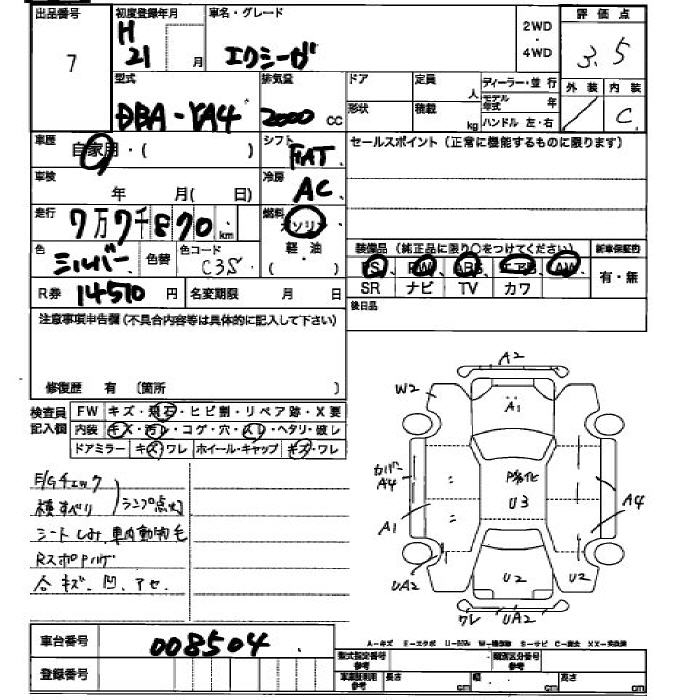 出品番号 初度登録年月 車名・グレード 2WD・4WD 評価点
7 H21 月 エクシーガ 3.5
外装 内装
C
型式 排気量 ドア 定員 人 ディーラー・並行
DBA-YA4 2000 cc 形状 積載 kg モデル年式 年
ハンドル 左・右
車歴 自家用・( ) シフト FAT セールスポイント(正常に機能するものに限ります)
車検 年 月( 日) 冷房 AC
走行 7万7千870 km 燃料 ガソリン
色 シルバー 色替 色コード C3S 軽・油 ( )
装備品(純正品に限り○をつけてください) 新車保証書
PS、PW、ABS、エアB、AW 有・無
R券 14510 円 名変期限 月 日 SR ナビ TV カワ
後日品
注意事項申告欄(不具合内容等は具体的に記入して下さい)
修復歴 有 (箇所 )
検査員記入欄 FW キズ・飛石・ヒビ割・リペア跡・X要
内装 キズ・汚レ・コゲ・穴・スレ・ヘタリ・破レ
ドアミラー キズ・ワレ ホイール・キャップ キズ・ワレ
E/Gチェック
横すべり ランプ点灯
シートしみ、車内動物毛
RスポPハゲ
合キズ、凹、アセ
A2
W2
A1
カバーA4
P劣化
U3
A4
A1
UA2
U2
U2
ワレ
UA2
車台番号 008504
登録番号
型式指定番号参考 類別区分番号参考
車庫証明用参考 長さ cm 幅 cm 高さ cm